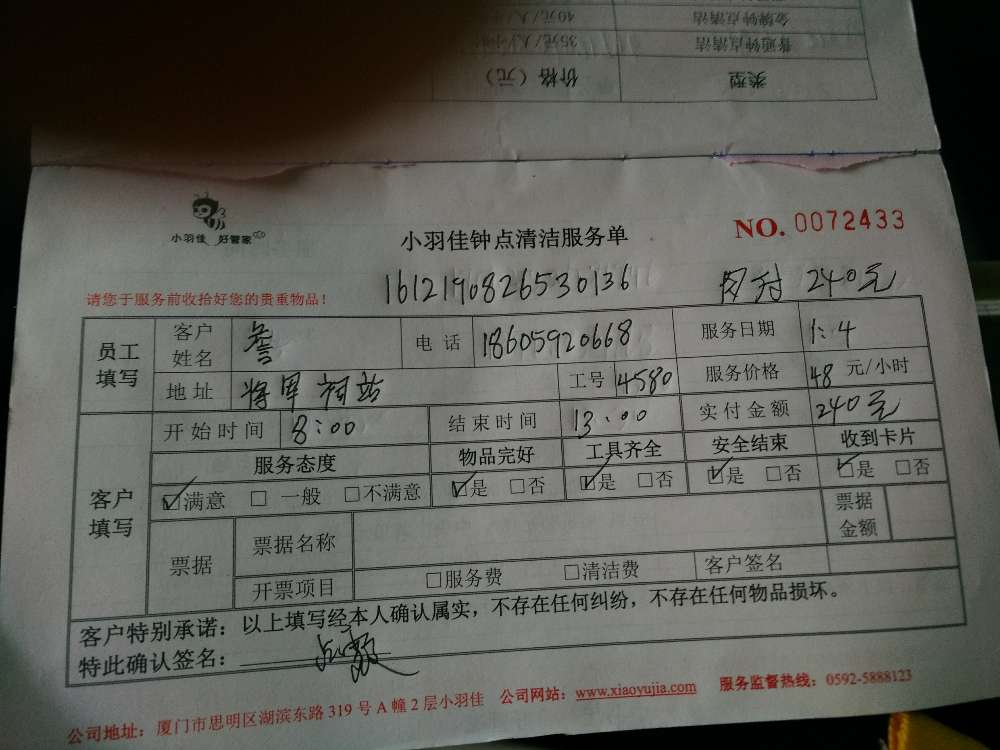 普通钟点清洁 35元/人/小时
类型 价格（元）
小羽佳 好管家
小羽佳钟点清洁服务单
NO. 0072433
1612190826530136
网付 240元
请您于服务前收拾好您的贵重物品！
员工填写 客户姓名 詹 电话 18605920668 服务日期 1.4
地址 将军祠站 工号 4580 服务价格 48 元/小时
客户填写 开始时间 8:00 结束时间 13:00 实付金额 240元
服务态度 物品完好 工具齐全 安全结束 收到卡片
☑满意 □一般 □不满意 ☑是 □否 ☑是 □否 ☑是 □否 ☑是 □否
票据 票据名称 票据金额
开票项目 □服务费 □清洁费 客户签名
客户特别承诺：以上填写经本人确认属实，不存在任何纠纷，不存在任何物品损坏。
特此确认签名：
公司地址：厦门市思明区湖滨东路 319 号 A 幢 2 层小羽佳 公司网站：www.xiaoyujia.com 服务监督热线：0592-5888123